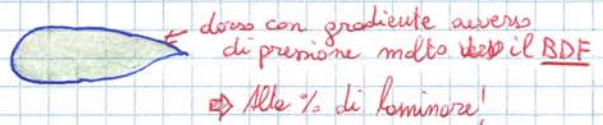 dorso con gradiente avverso
di pressione molto verso il BDF
⇒ Alta % di laminare!